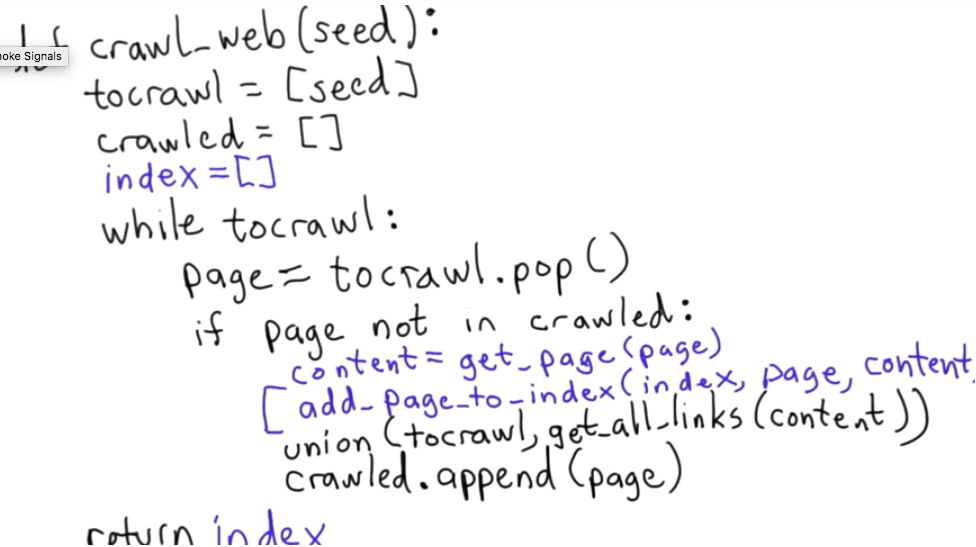 def crawl_web(seed):
oke Signals
tocrawl = [seed]
crawled = []
index = []
while tocrawl:
page = tocrawl.pop()
if page not in crawled:
content = get_page(page)
add_page_to_index(index, page, content
union(tocrawl, get_all_links(content))
crawled.append(page)
return index